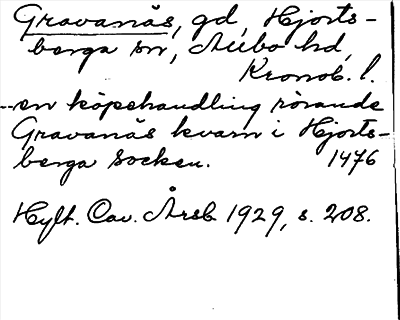 Gravanäs, gd, Hjorts-
berga sn, Allbo hd,
Kronob. l.
--en köpehandling rörande
Gravanäs kvarn i Hjorts-
berga socken. 1476
Hylt. Cav. Årsb 1929, s. 208.